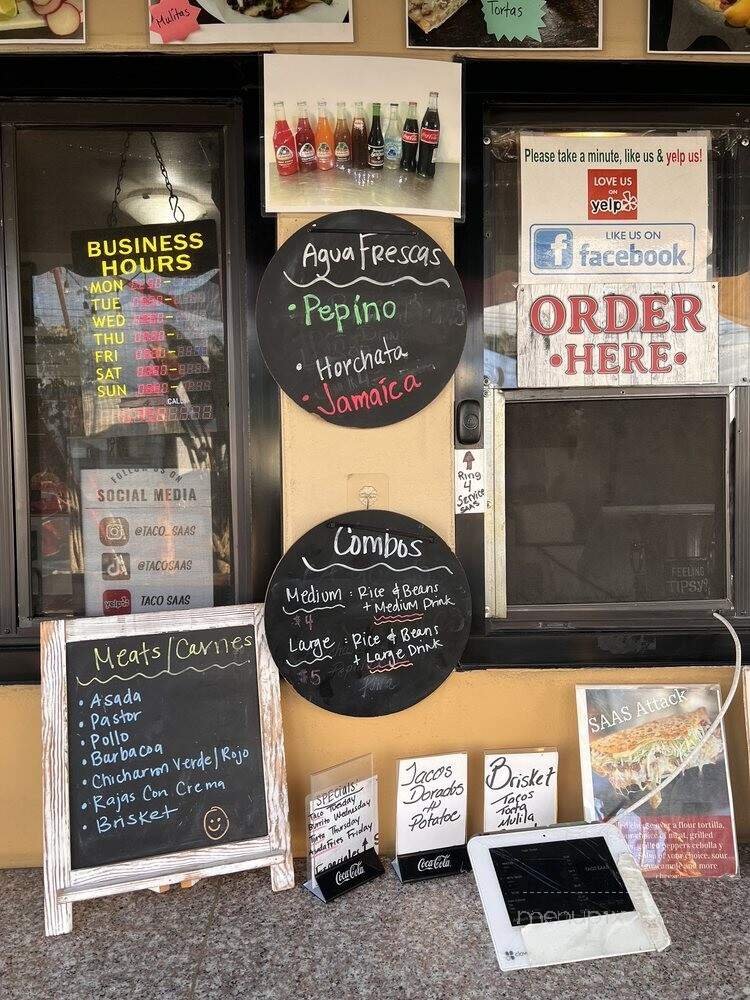 Mulitas
Tortas
Please take a minute, like us & yelp us!
LOVE US
ON
yelp
LIKE US ON
facebook
ORDER
•HERE•
BUSINESS
HOURS
MON
TUE
WED
THU
FRI
SAT
SUN
CALL
Agua Frescas
• Pepino
• Horchata
• Jamaica
Ring
4
Service
SAAS
FOLLOW US ON
SOCIAL MEDIA
@TACO_SAAS
@TACOSAAS
yelp
TACO SAAS
FEELING
TIPSY?
Combos
Medium : Rice & Beans
+ Medium Drink
$4
Large : Rice & Beans
+ Large Drink
$5
Meats/Carnes
• Asada
• Pastor
• Pollo
• Barbacoa
• Chicharron Verde/Rojo
• Rajas Con Crema
• Brisket
SPECIALS
Taco Tuesday
Burrito Wednesday
Torta Thursday
Fries Friday
Coca-Cola
Tacos
Dorados
Potatoe
Coca-Cola
Brisket
Tacos
Torta
Mulita
SAAS Attack
over a flour tortilla,
choice of meat, grilled
peppers cebolla y
salsa of your choice, sour
guacamole and more
TACO SAAS
menupix